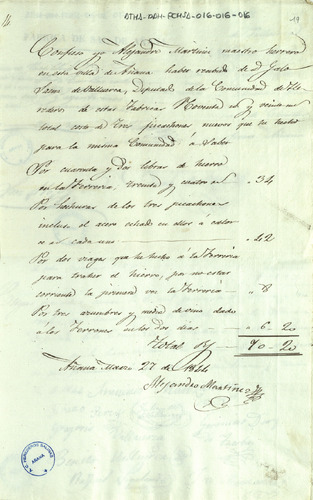 ATHA-DAH-FCMSL-016-016-016
19
Confieso yo Alejandro Martinez maestro herrero
en esta villa de Añana haber recibido de Dn Galo
Saenz de Deputado de la Comunidad de He
rederos de estas Fabricas Noventa rs y veinte ms
total coste de tres picachones nuevos que he hecho
para la misma Comunidad á Saber
Por cuarenta y dos libras de hierro
en la Ferreria, treinta y cuatro rs " 34
Por hechuras de los tres picachones
incluso el acero echado en ellos á catorce
rs cada uno " 42
Por dos viages que he hecho á la Ferreria
para traher el hierro, por no estar
corriente la primera vez la Ferreria " 8
Por tres azumbres y media de vino dado
á los Ferrones en los dos dias " 6. 20
Total Rs 90. 20
Añana Marzo 27 de 1844
Alejandro Martinez
AÑANA